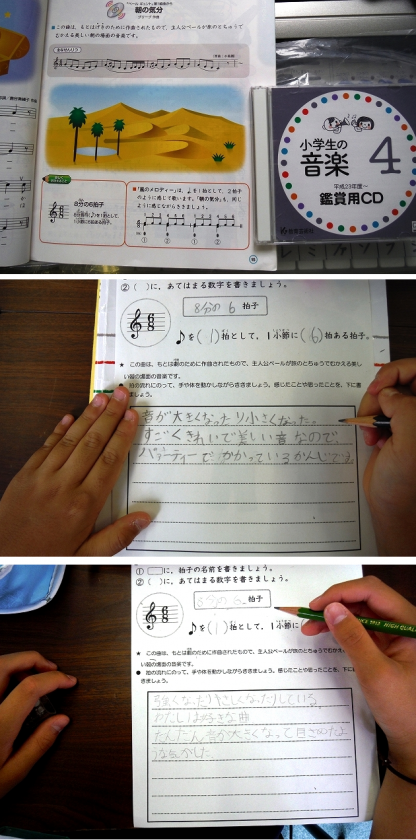 朝の気分
グリーグ 作曲
この曲は、もとはげきのために作曲されたもので、主人公ペールが旅のとちゅうで
むかえる美しい朝の場面の音楽です。
8分の6拍子
小学生の
音楽 4
平成23年度〜
鑑賞用CD
②( )に、あてはまる数字を書きましょう。
8分の6 拍子
6
8
♪を(1)拍として、1小節に(6)拍ある拍子。
★ この曲は、もとは劇のために作曲されたもので、主人公ペールが旅のとちゅうでむかえる美し
い朝の場面の音楽です。
● 拍の流れにのって、手や体を動かしながらききましょう。感じたことや思ったことを、下に書
きましょう。
音が大きくなったり小さくなった。
すごくきれいで美しい音なので、
パーティーでかかっているかんじです。
① に、拍子の名前を書きましょう。
②( )に、あてはまる数字を書きましょう。
8分の6 拍子
6
8
♪を(1)拍として、1小節に(
★ この曲は、もとは劇のために作曲されたもので、主人公ペールが旅のとちゅうでむかえ
い朝の場面の音楽です。
● 拍の流れにのって、手や体を動かしながらききましょう。感じたことや思ったことを、下に
きましょう。
強くなったりやさしくなったりしている。
わたしは好きな曲
だんだん音が大きくなって目ざめたよ
うな気がした